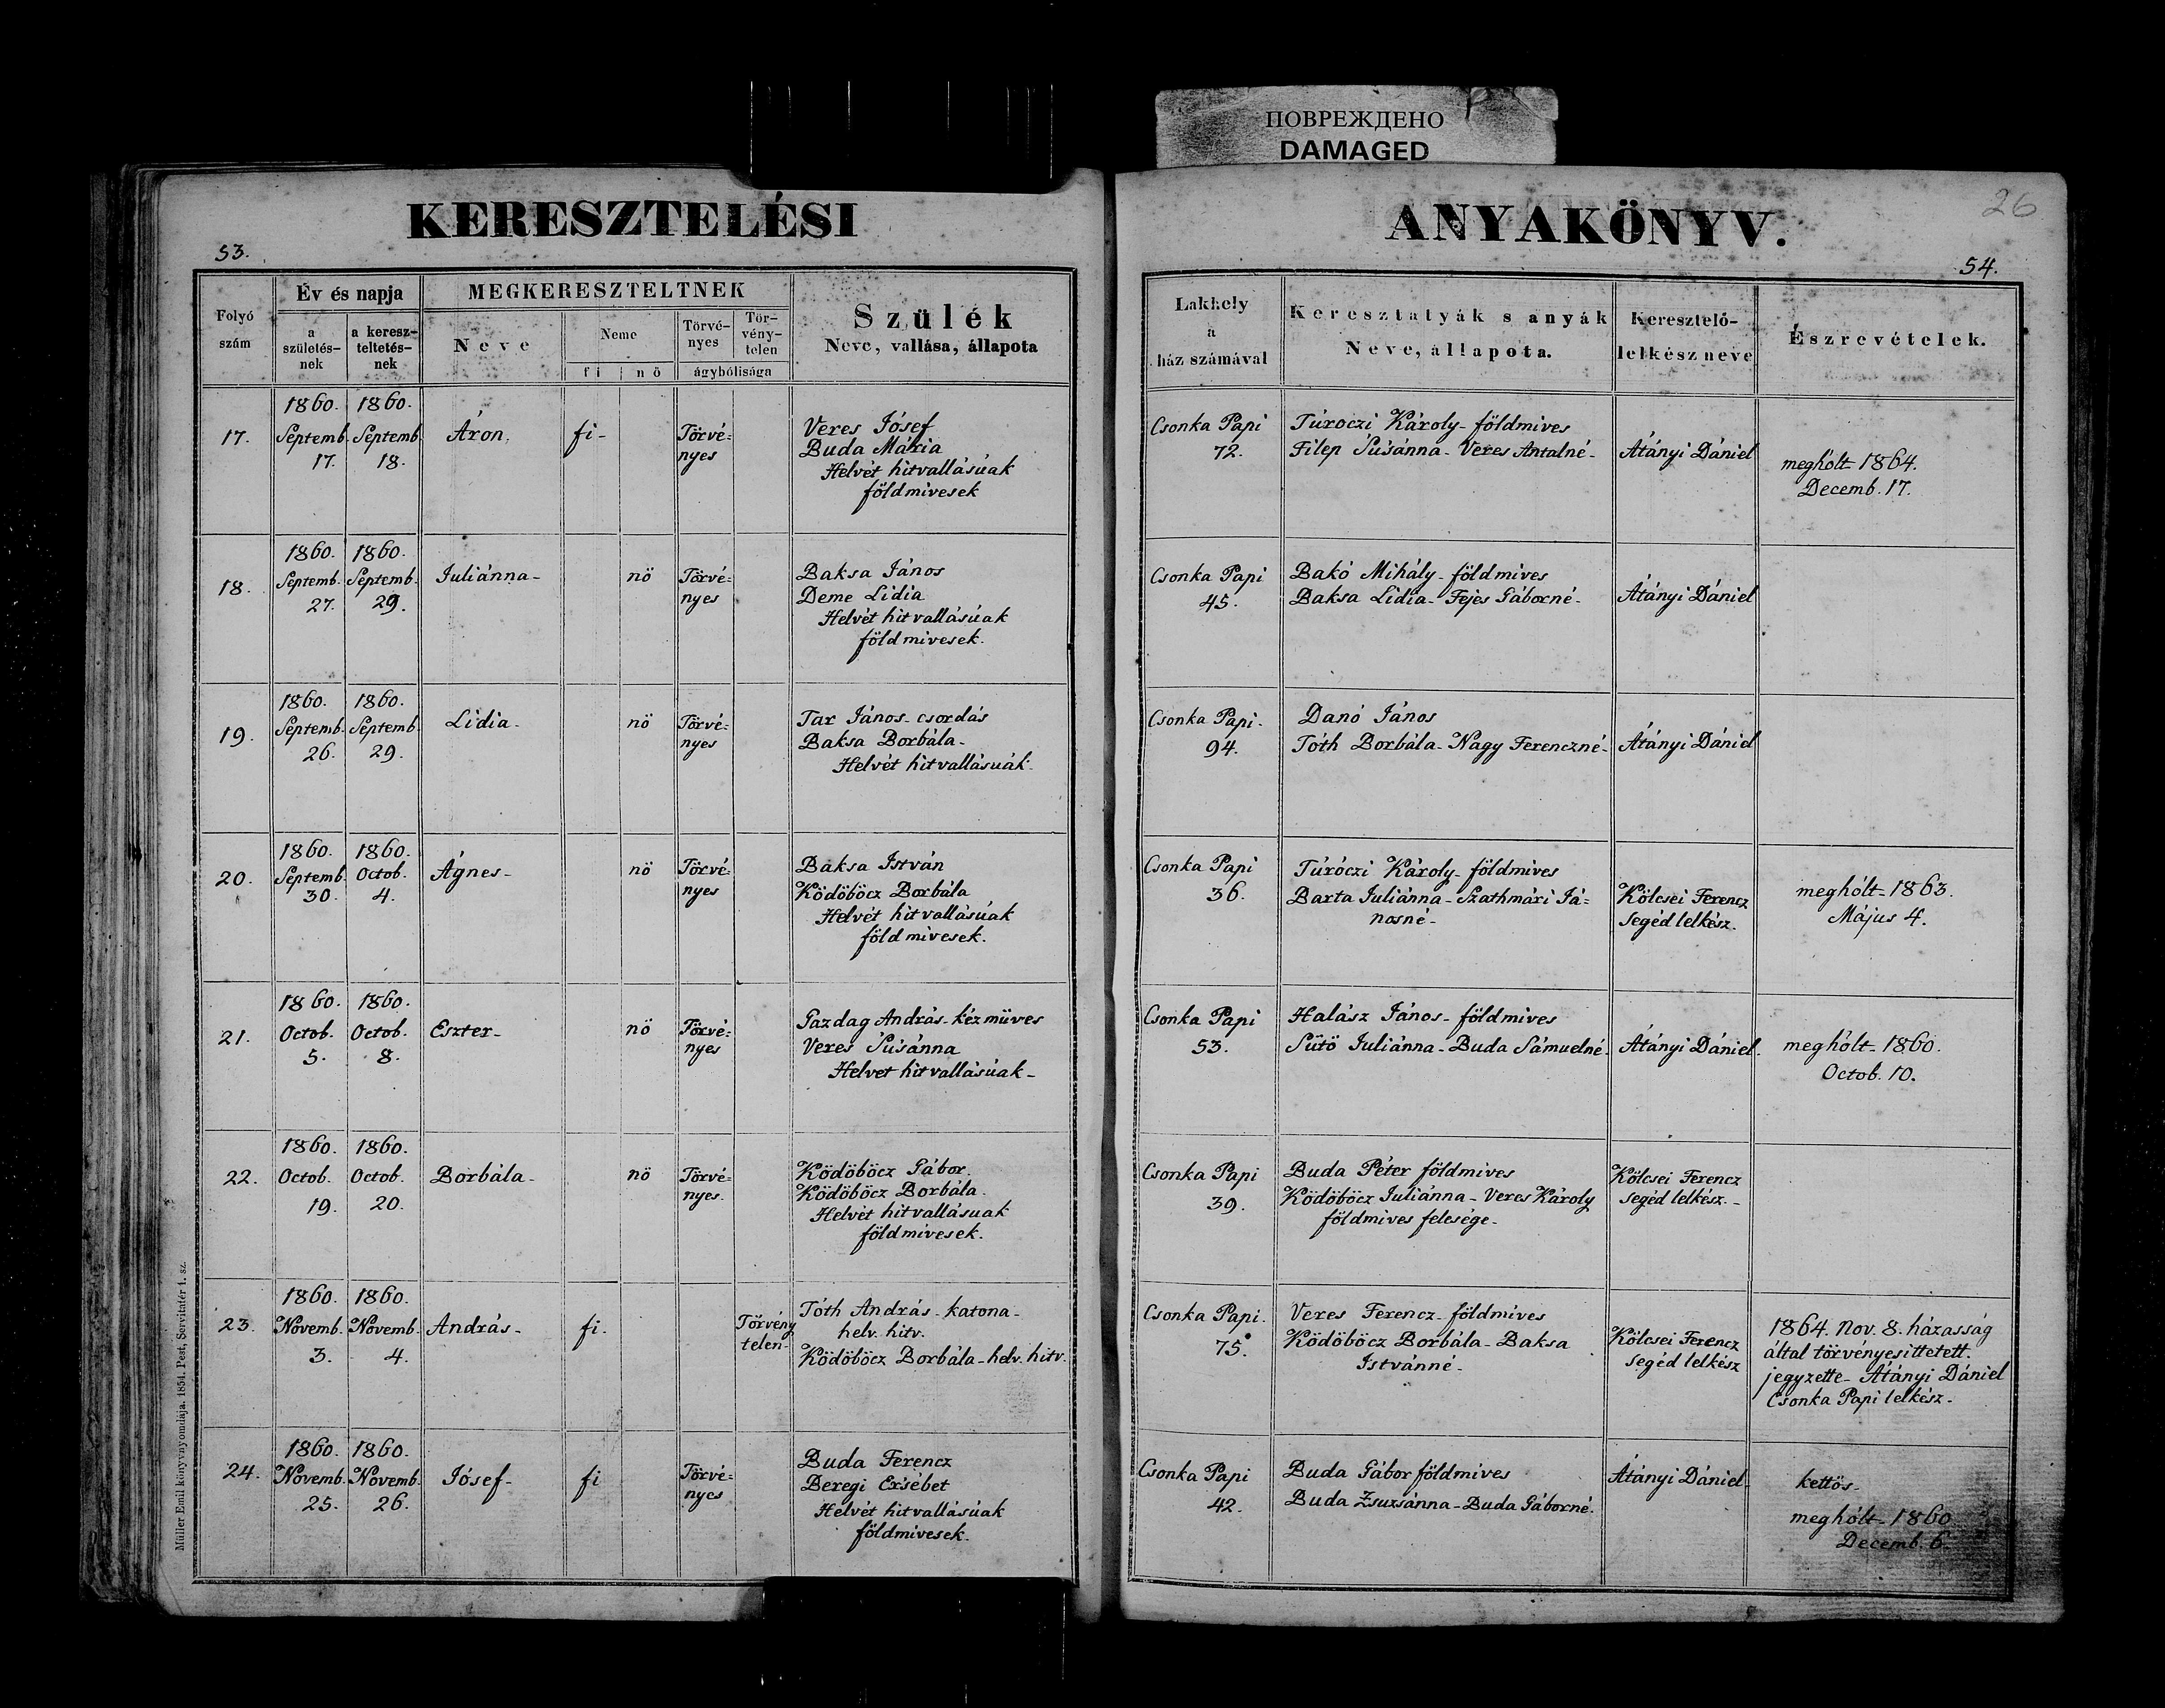 ПОВРЕЖДЕНО
DAMAGED
26
KERESZTELÉSI
ANYAKÖNYV.
53.
54.
Folyó
szám
Év és napja
a
születés-
nek
a keresz-
teltetés-
nek
MEGKERESZTELTNEK
Neve
Neme
fi
nö
Törvé-
nyes
Tör-
vény-
telen
ágybólisága
Szülék
Neve, vallása, állapota
Lakhely
a
ház számával
Keresztatyák s anyák
Neve, állapota.
Keresztelő-
lelkész neve
Észrevételek.
17.
1860.
Septemb.
17.
1860.
Septemb.
18.
Áron.
fi-
Törvé=
nyes
Veres Jósef
Buda Mária
Helvét hitvallásúak
földmivesek
Csonka Papi
72.
Túroczi Károly- földmives
Filep Súsánna- Veres Antalné-
Átányi Dániel
meghólt- 1864.
Decemb. 17.
18.
1860.
Septemb.
27.
1860.
Septemb.
29.
Juliánna-
nö
Törvé=
nyes
Baksa János
Deme Lidia
Helvét hitvallásúak
földmivesek.
Csonka Papi
45.
Bakó Mihály- földmives
Baksa Lidia- Fejes Gáborné-
Átányi Dániel
19.
1860.
Septemb.
26.
1860.
Septemb.
29.
Lidia-
nö
Törvé=
nyes
Tar János- csordás
Baksa Borbála-
Helvét hitvallásuák-
Csonka Papi-
94.
Danó János
Tóth Borbála- Nagy Ferenczné-
Átányi Dániel
20.
1860.
Septemb.
30.
1860.
Octob.
4.
Ágnes-
nö
Törvé=
nyes
Baksa István
Ködöböcz Borbála
Helvét hitvallásúak
földmivesek.
Csonka Papi
36.
Túróczi Károly- földmives
Barta Juliánna- Szathmári Já=
nosné-
Kölcsei Ferencz
segéd lelkész.
meghólt- 1863.
Május 4.
21.
1860.
Octob.
5.
1860.
Octob.
8.
Eszter-
nö
Törvé=
nyes
Gazdag András- kéz müves
Veres Súsánna
Helvet hitvallásúak-
Csonka Papi
53.
Halász János- földmives
Sütö Juliánna- Buda Sámuelné.
Átányi Dániel.
meghólt- 1860.
Octob. 10.
22.
1860.
Octob.
19.
1860.
Octob.
20.
Borbála-
nö
Törvé=
nyes.
Ködöböcz Gábor
Ködöböcz Borbála.
Helvét hitvallásuak
földmivesek.
Csonka Papi
39.
Buda Péter földmives
Ködöböcz Juliánna- Veres Károly
földmives felesége-
Kölcsei Ferencz
segéd lelkész.-
23.
1860.
Novemb.
3.
1860.
Novemb.
4.
András-
fi.
Törvény
telen-
Tóth András- katona-
helv. hitv.
Ködöböcz Borbála- helv. hitv.
Csonka Papi.
75.
Veres Ferencz- földmives
Ködöböcz Borbála- Baksa
Istvánné-
Kölcsei Ferencz
segéd lelkész
1864. Nov. 8. házasság
által törvényesittetett.
jegyzette- Átányi Dániel
Csonka Papi lelkész-
24.
1860.
Novemb.
25.
1860.
Novemb.
26.
Jósef-
fi
Törvé=
nyes
Buda Ferencz
Beregi Ersébet
Helvét hitvallásúak
földmivesek.
Csonka Papi
42.
Buda Gábor földmives
Buda Zsuzsánna- Buda Gáborné.
Átányi Dániel-
kettös-
meghólt- 1860
Decemb. 6.
Müller Emil könyvnyomdája. 1854. Pest, Servitatér 1. sz.